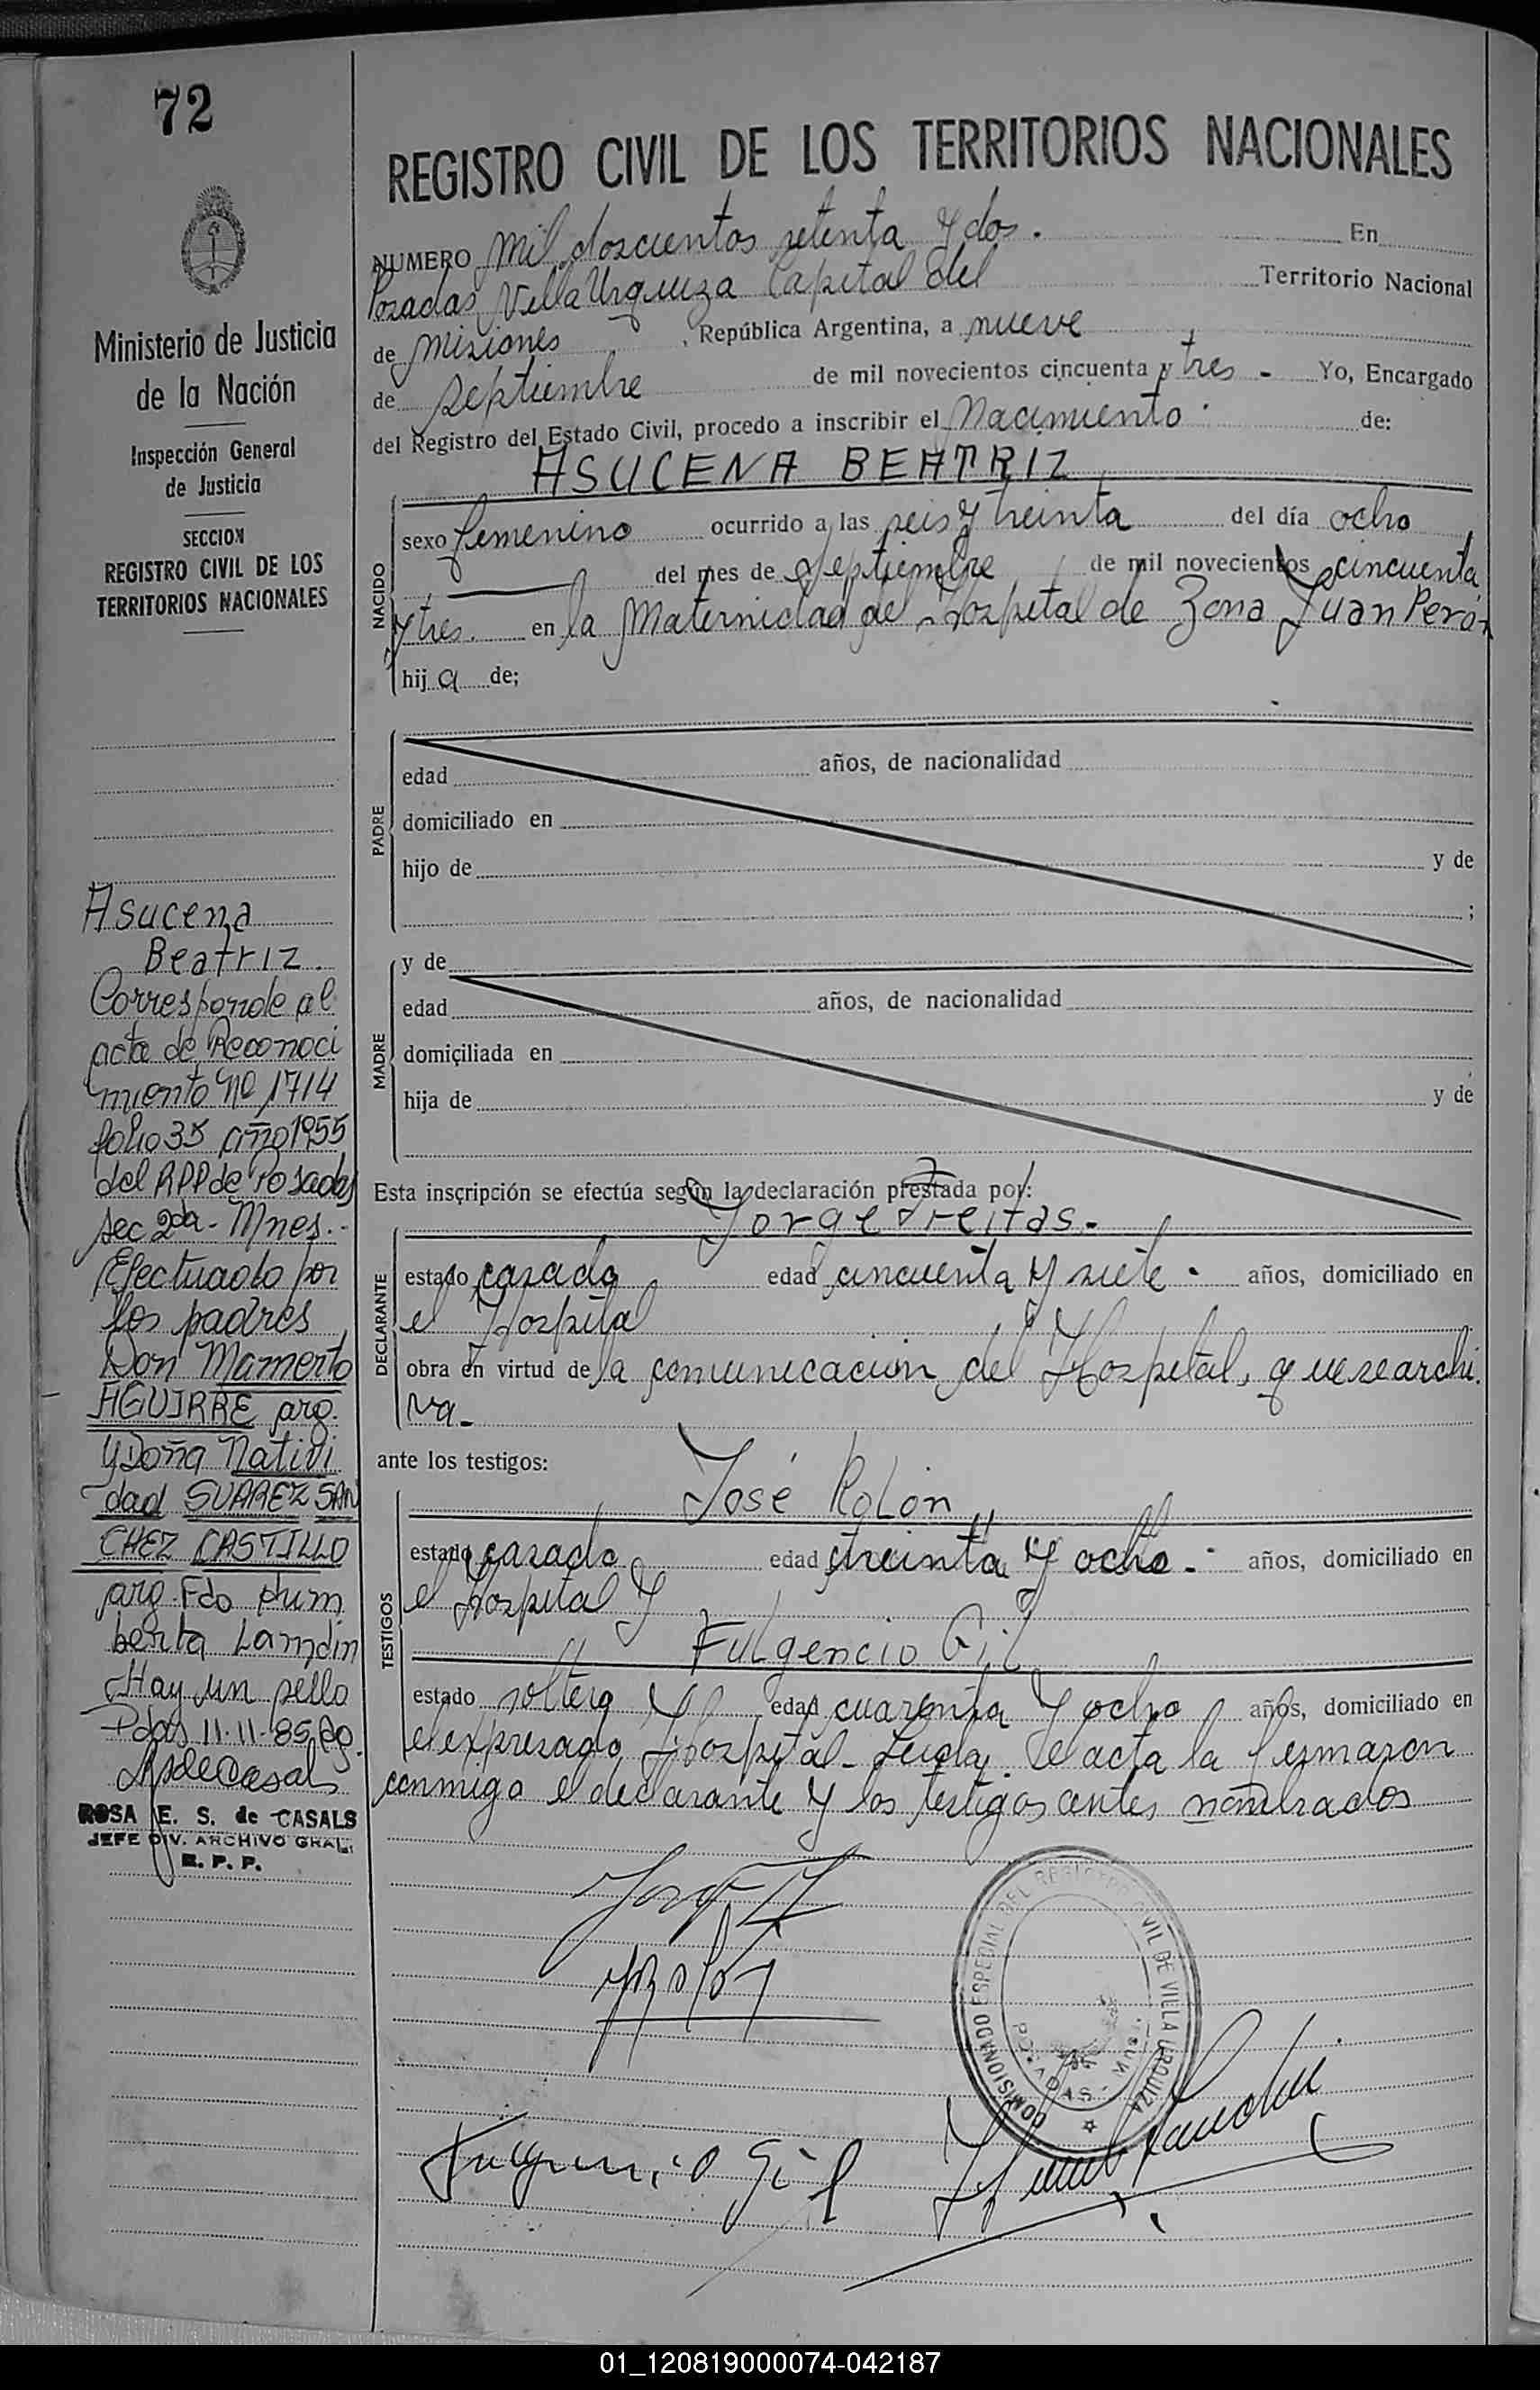 72
Ministerio de Justicia
de la Nación
Inspección General
de Justicia
SECCION
REGISTRO CIVIL DE LOS
TERRITORIOS NACIONALES
Asucena
Beatriz.
Corresponde al
acta de Reconoci
miento Nº 1714
folio 35 año 1955
del RPP de Posadas
sec 2da - Mnes.-
Efectuado por
los padres
Don Mamerto
AGUIRRE arg.
y Doña Nativi
dad SUAREZ SAN
CHEZ CASTILLO
arg. Fdo
berta
Hay un sello
Pdas 11-11-85
ROSA E. S. de CASALS
JEFE DIV. ARCHIVO GRAL.
R. P. P.
REGISTRO CIVIL DE LOS TERRITORIOS NACIONALES
NUMERO mil doscientos setenta y dos. En
Posadas, Villa Urquiza Capital del Territorio Nacional
de Misiones, República Argentina, a nueve
de septiembre de mil novecientos cincuenta y tres - Yo, Encargado
del Registro del Estado Civil, procedo a inscribir el Nacimiento. de:
ASUCENA BEATRIZ
NACIDO
sexo femenino ocurrido a las seis y treinta del día ocho
del mes de septiembre de mil novecientos cincuenta
y tres. en la Maternidad del Hospital de Zona Juan Perón
hij a de;
PADRE
edad años, de nacionalidad
domiciliado en
hijo de y de
;
MADRE
y de
edad años, de nacionalidad
domiciliada en
hija de y de
Esta inscripción se efectúa según la declaración prestada por:
Jorge Freitas.-
DECLARANTE
estado casado edad cincuenta y siete. años, domiciliado en
el Hospital
obra en virtud de la comunicacion del Hospital, que se archi
va.-
ante los testigos:
José Rolón
TESTIGOS
estado casado edad treinta y ocho.- años, domiciliado en
el Hospital y
Fulgencio Gil
estado soltero edad cuarenta y ocho años, domiciliado en
el expresado Hospital- Leida el acta la firmaron
conmigo el declarante y los testigos antes nombrados
JRolon
Fulgencio Gil
COMISIONADO ESPECIAL DEL REGISTRO CIVIL DE VILLA URQUIZA
POSADAS
01_120819000074-042187